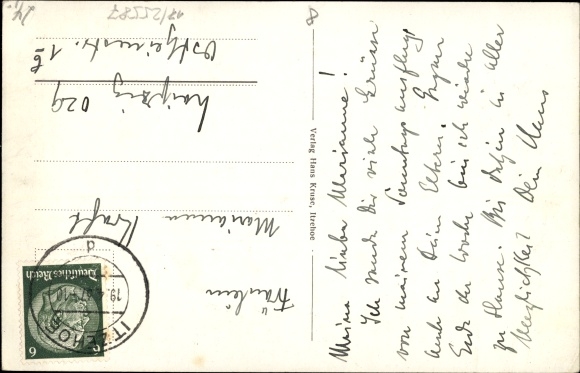 Meine liebe Marianne!
Ich sende Dir viele Grüsse
von meinem Sonntagsausflug,
auch an Deine Eltern.
Ende der Woche bin ich wieder
zu Hause. Bis dahin in aller
Herzlichkeit Dein Hans
Verlag Hans Kruse, Itzehoe
Fräulein
Marianne
Kraft
Leipzig O29
Deutsches Reich
6 6
ITZEHOE
d
18/25587